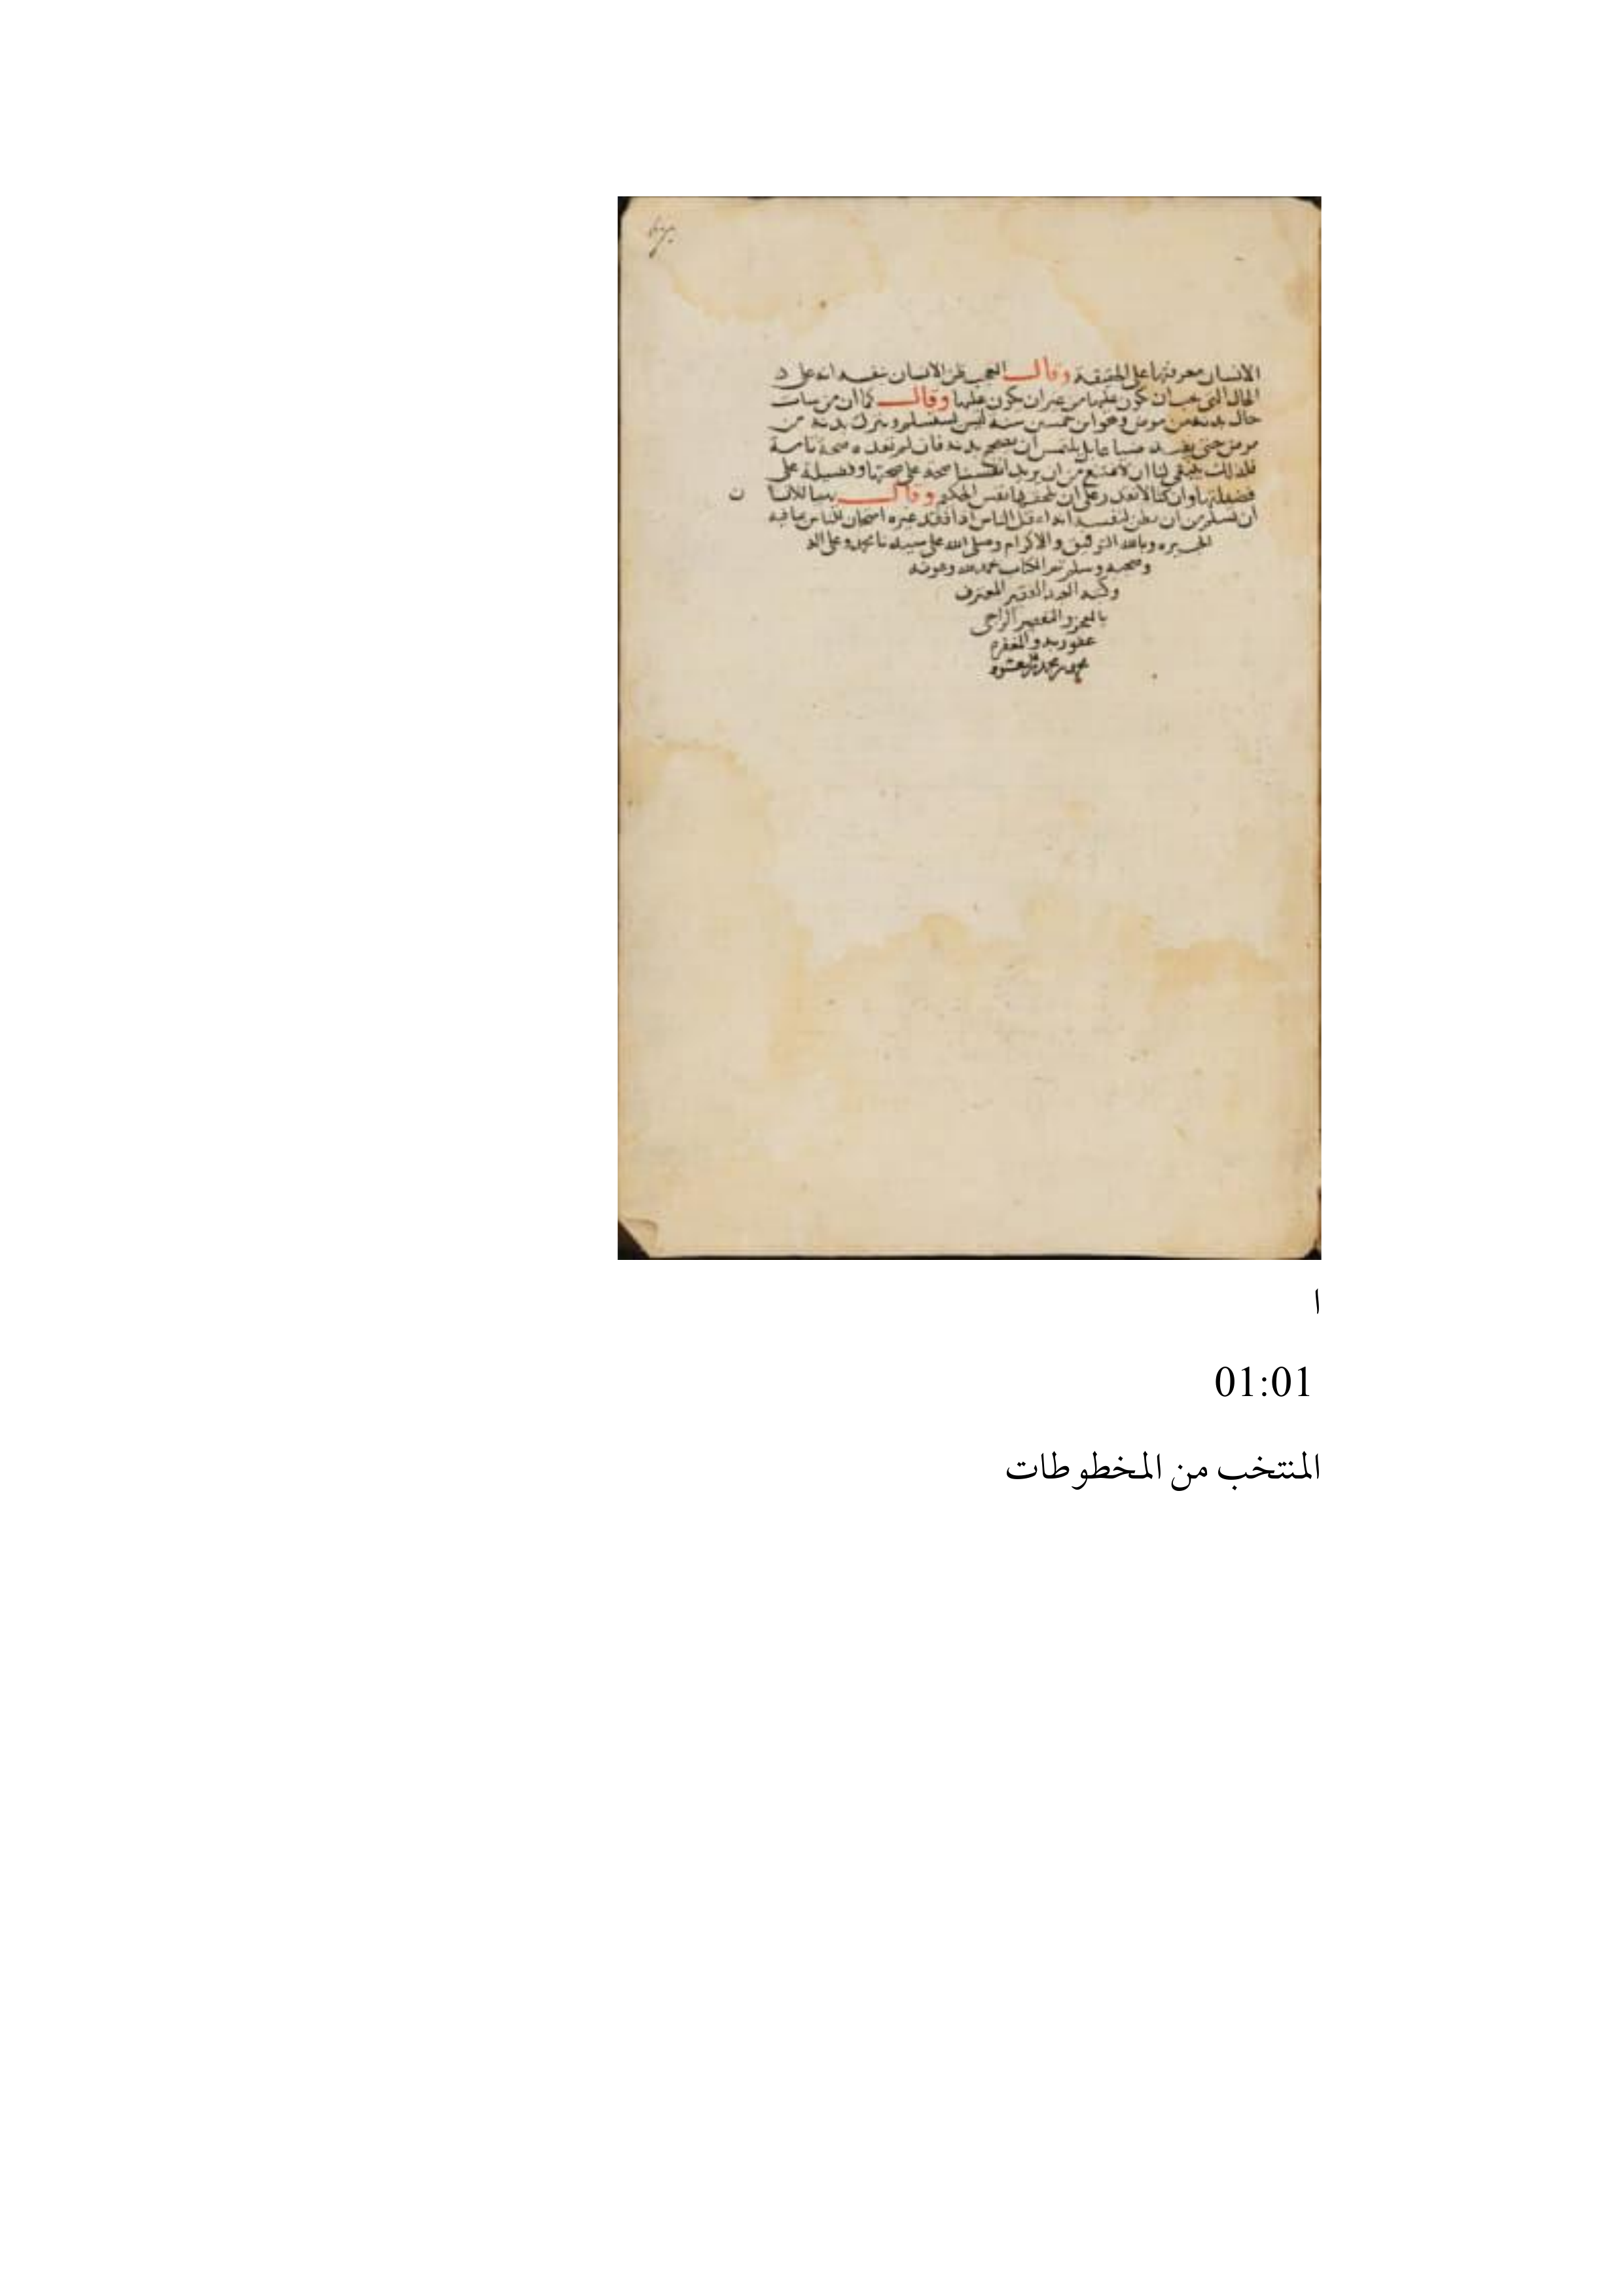 الانسان معرفتها على الحقيقة وقال العجب ظن الانسان بنفسه انه على
الحال التي يجب ان يكون عليها من غير ان يكون عليها وقال كما ان من سات
حال بدنه من مرض وهو ابن خمسين سنة ليس يستسلم ويترك بدنه من
مرض حتى يفسد ضياعا بل يلتمس ان يصحح بدنه فان لم يفده صحة تامة
فلذلك ينبغي لنا ان لا نمتنع من ان نزيد انفسنا صحة على صحتها وفضيلة على
فضيلتها وان كنا لا نقدر على ان نلحقها نفس الحكيم وقال للانسا ن
ان يسلم من ان يظن لنفسه انه الناس اذا قلد غيره امتحان الناس بما فيه
الخيره وبالله التوفيق والاكرام وصلى الله على سيدنا محمد وعلى اله
وصحبه وسلم تم الكتاب بحمد الله وعونه
وكتبه العبد الفقير المعترف
بالعجز والتقصير الراجي
عفو ربه والمغفره
محمد
ا
01:01
المنتخب من المخطوطات